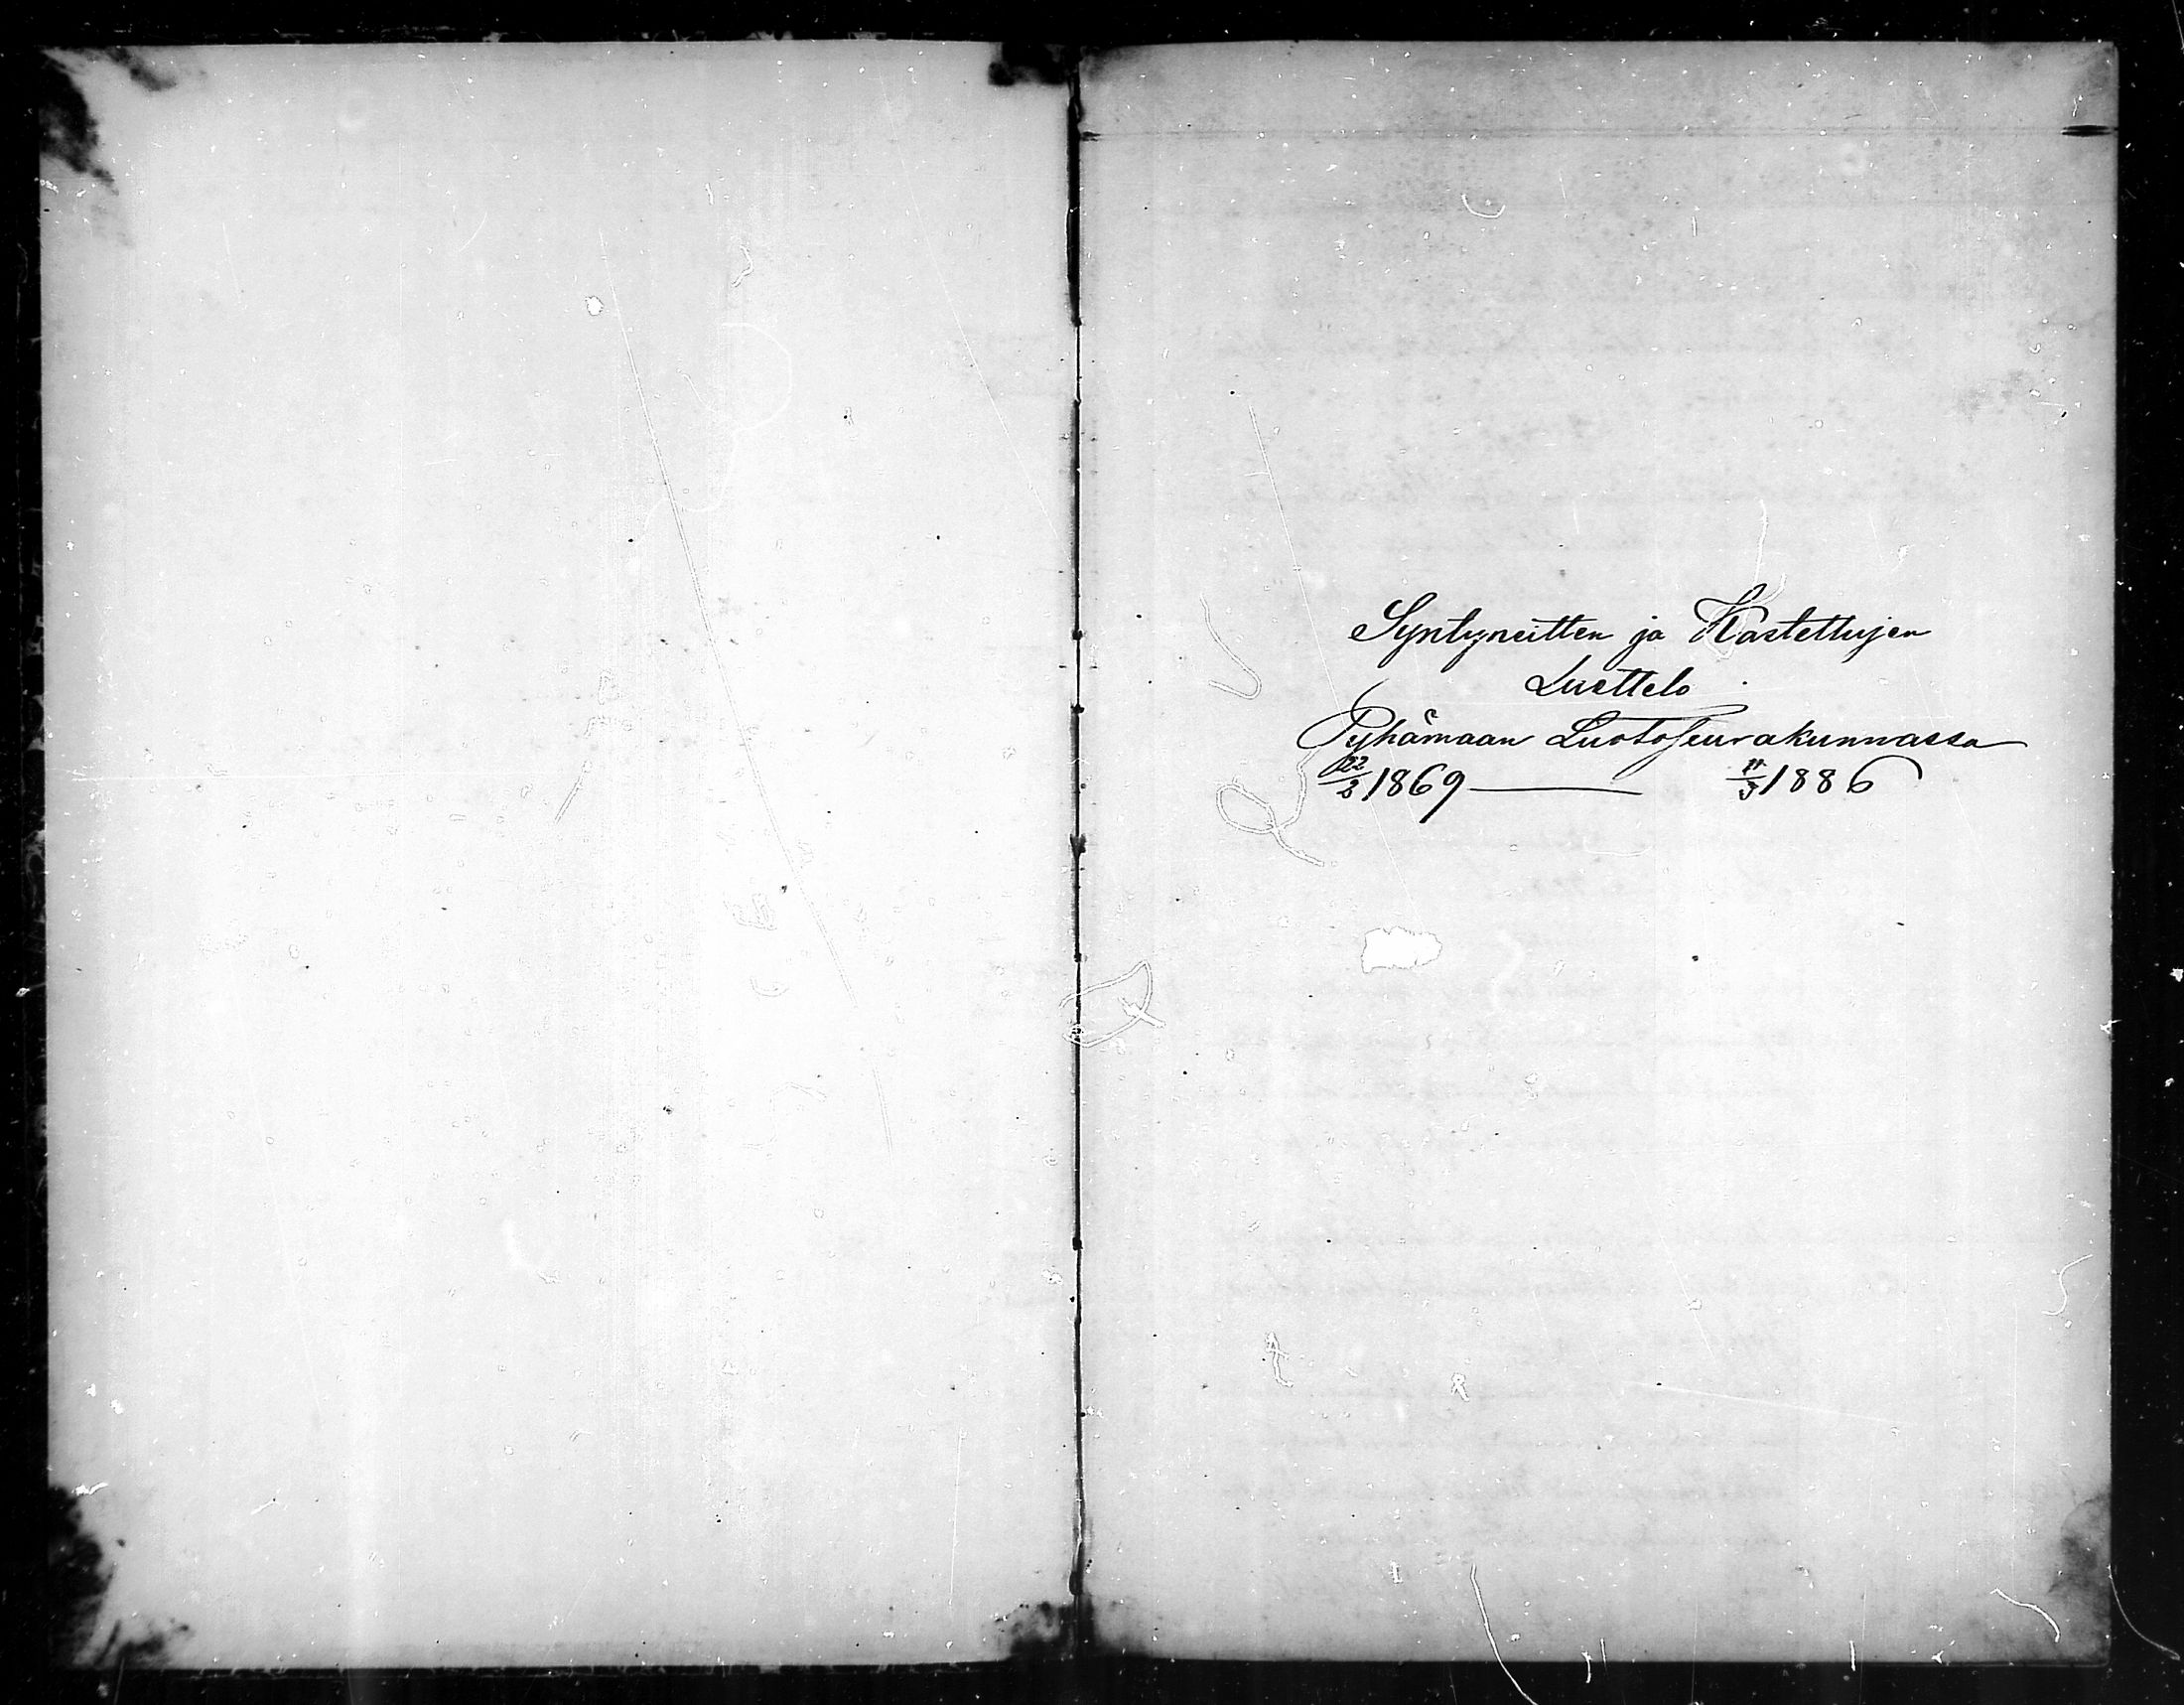 Syntyneitten ja Kastettujen
Luettelo
Pyhämaan Luotoseurakunnassa
22/2 1869 — 11/3 1886